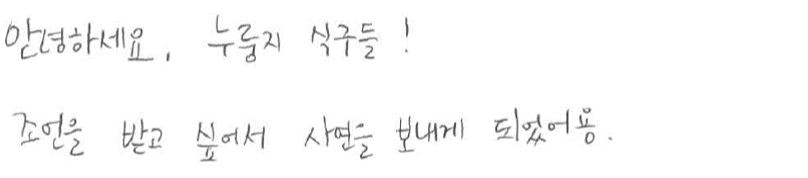 안녕하세요, 누룽지 식구들!
조언을 받고 싶어서 사연을 보내게 되었어용.